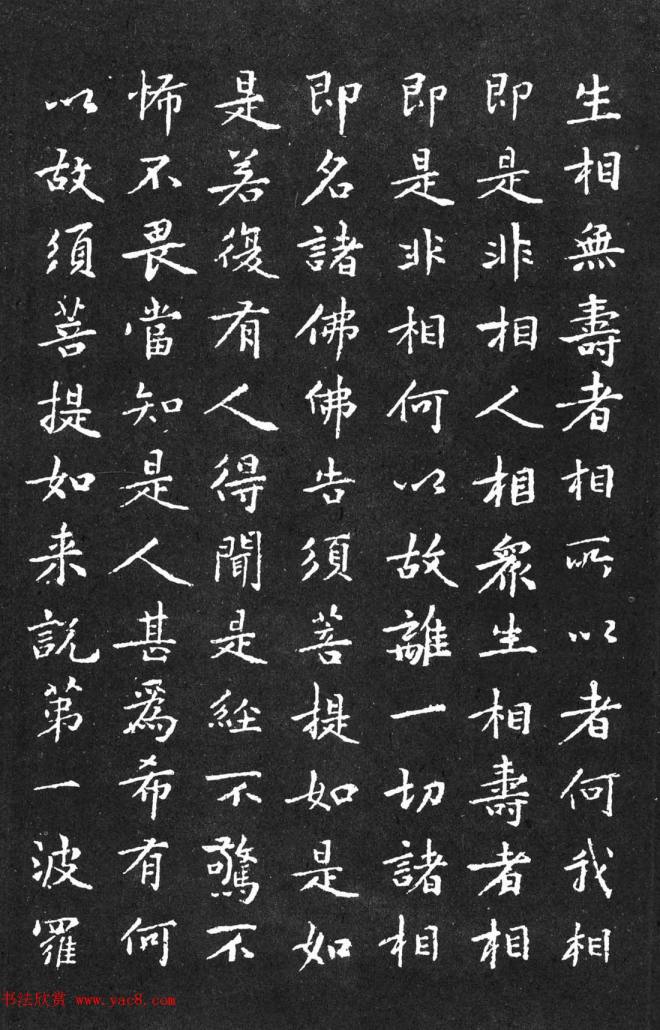 生相無壽者相所以者何我相
即是非相人相眾生相壽者相
即是非相何以故離一切諸相
即名諸佛佛告須菩提如是如
是若復有人得聞是經不驚不
怖不畏當知是人甚為希有何
以故須菩提如来說第一波羅
书法欣赏 www.yac8.com